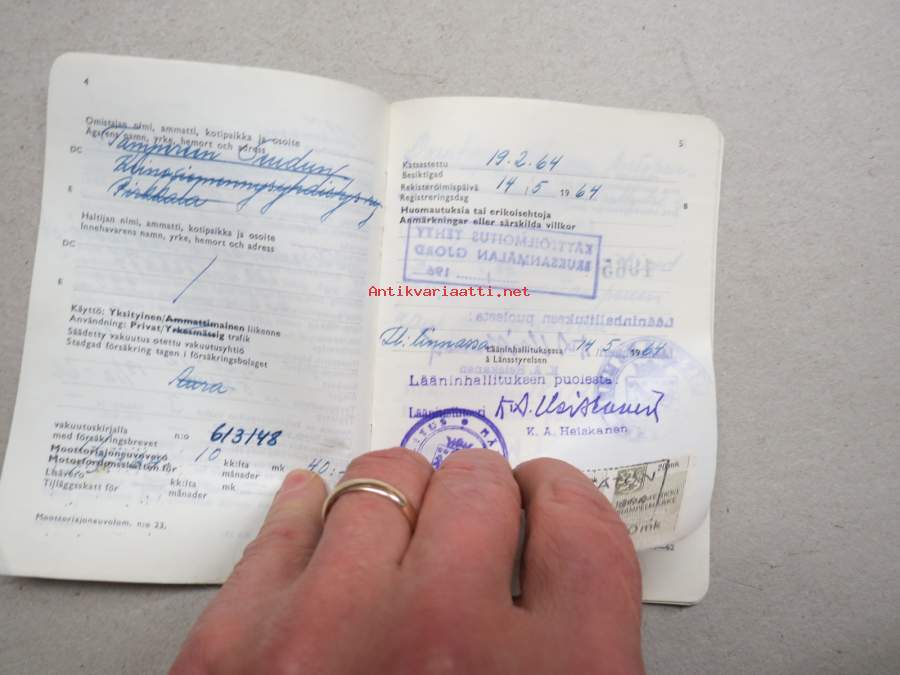 4
Omistajan nimi, ammatti, kotipaikka ja osoite
Ägarens namn, yrke, hemort och adress
DC
Tampereen Oudun
E
Pirkkala
Haltijan nimi, ammatti, kotipaikka ja osoite
Innehavarens namn, yrke, hemort och adress
DC
E
Käyttö: Yksityinen/Ammattimainen liikenne
Användning: Privat/Yrkesmässig trafik
Säädetty vakuutus otettu vakuutusyhtiö
Stadgad försäkring tagen i försäkringsbolaget
Aura
vakuutuskirjalla
med försäkringsbrevet n:o 613148
Moottoriajoneuvovero 10 kk:lta mk 40:-
Motorfordonsskatten för månader
Lisävero kk:lta mk
Tilläggsskatt för månader
Moottoriajoneuvolom. n:o 23.
5
Katsastettu 19.2.64
Besiktigad
Rekisteröimispäivä 14/5 1964
Registreringsdag
B
Huomautuksia tai erikoisehtoja
Anmärkningar eller särskilda villkor
KÄYTTÖILMOITUS TEHTY
BRUKSANMÄLAN GJORD
196
1965
Antikvariaatti.net
Lääninhallituksen puolesta:
Hl:linnassa Lääninhallituksessa 14/5 1964
å Länsstyrelsen
K. A. Heiskanen
Lääninhallituksen puolesta:
K. A. Heiskanen
20 mk
62